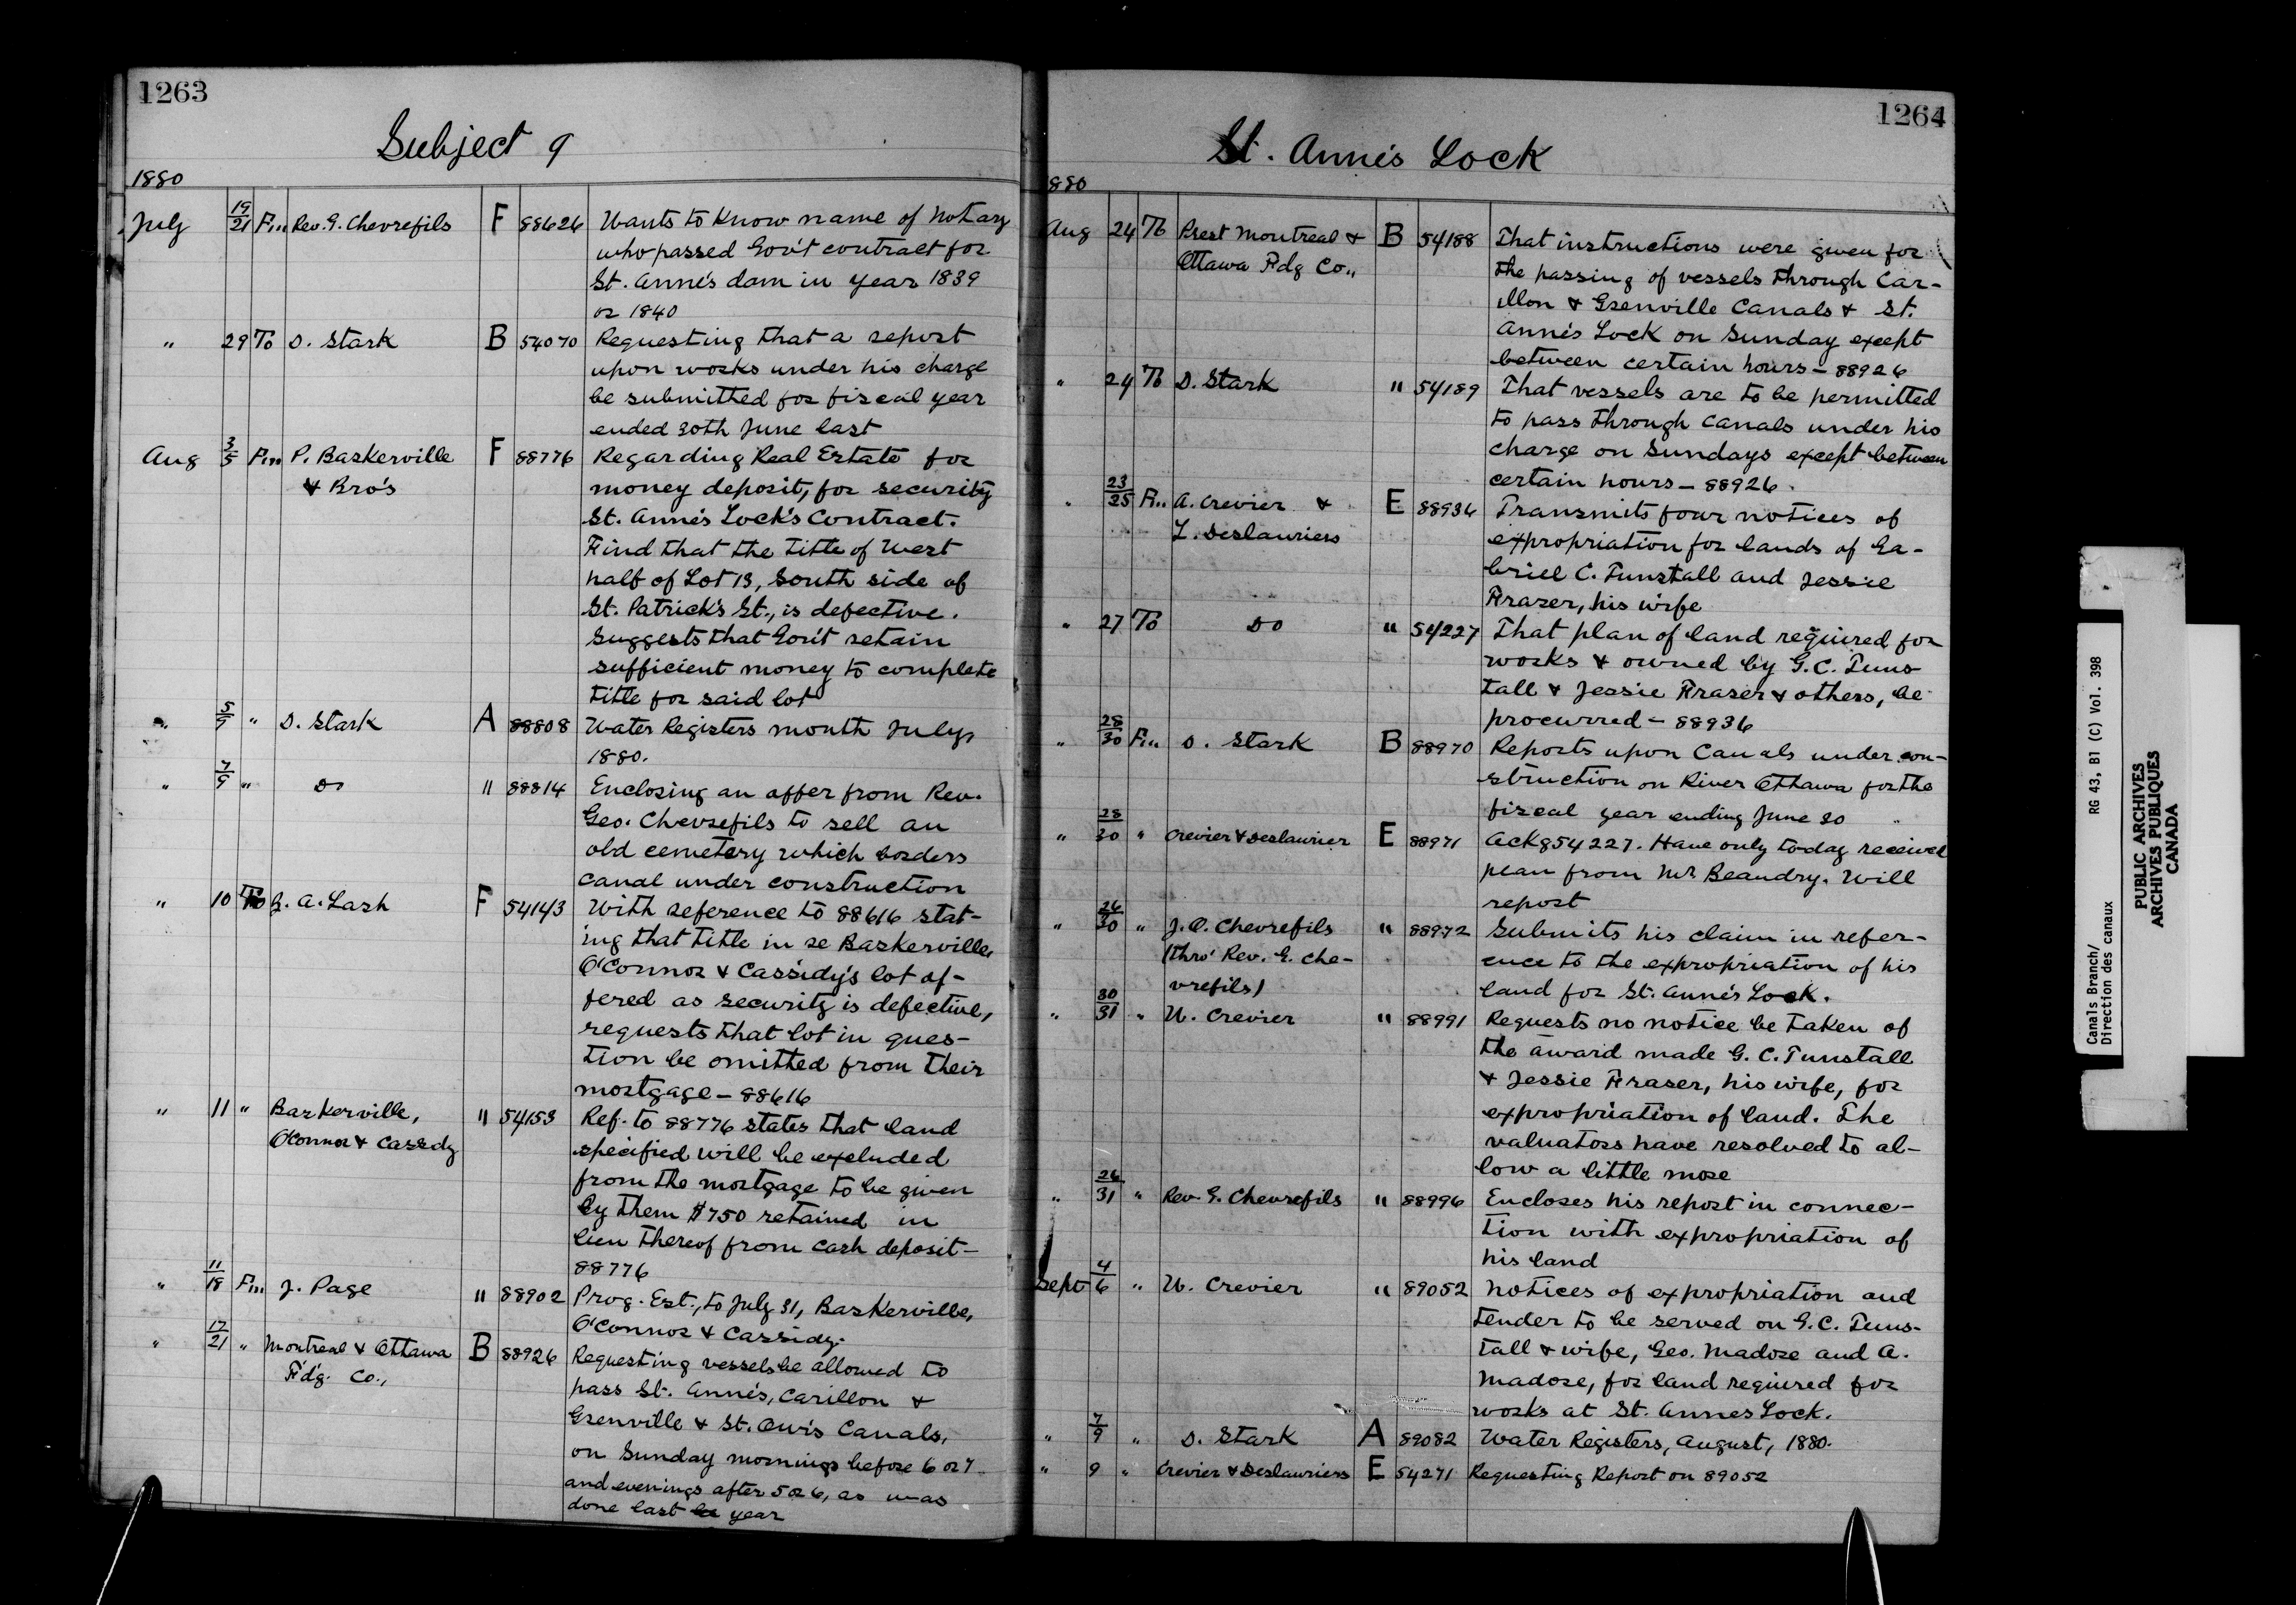 1263
Subject 9
1880
July 19/21 Fm Rev. G. Chevrefils F 88626 Wants to know name of Notary
who passed Gov't contract for
St. Anne's dam in year 1839
or 1840
" 29 To D. Stark B 54070 Requesting that a report
upon works under his charge
be submitted for fiscal year
ended 30th June last
Aug 3/5 Fm P. Baskerville F 88776 Regarding Real Estate for
& Bro's money deposit, for security
St. Anne's Lock's Contract.
Find that the title of West
half of Lot 13, South side of
St. Patrick's St., is defective.
Suggests that Gov't retain
sufficient money to complete
title for said lot
" 5/7 " D. Stark A 88808 Water Registers month July,
1880.
" 7/9 " Do " 88814 Enclosing an offer from Rev.
Geo. Chevrefils to sell an
old cemetery which borders
canal under construction
" 10 To Z. A. Lash F 54143 With reference to 88616 stat-
ing that title in re Baskerville,
O'Connor & Cassidy's lot of-
fered as security is defective,
requests that lot in ques-
tion be omitted from their
mortgage - 88616
" 11 " Baskerville, " 54153 Ref. to 88776 states that land
O'Connor & Cassidy specified will be excluded
from the mortgage to be given
by them $750 retained in
lieu thereof from cash deposit -
88776
" 11/18 Fm J. Page " 88902 Prog. Est., to July 31, Baskerville,
O'Connor & Cassidy.
" 17/21 " Montreal & Ottawa B 88926 Requesting vessels be allowed to
F'd'g. Co., pass St. Anne's, Carillon &
Grenville & St. Our's Canals,
on Sunday mornings before 6 or 7
and evenings after 5 or 6, as was
done last year
1264
St. Anne's Lock
880
Aug 24 To Prest Montreal & B 54188 That instructions were given for
Ottawa Fdg Co., the passing of vessels through Car-
illon & Grenville Canals & St.
Anne's Lock on Sunday except
between certain hours - 88926
" 24 To D. Stark " 54189 That vessels are to be permitted
to pass through canals under his
charge on Sundays except between
certain hours - 88926.
" 23/25 Fm A. Crevier & E 88936 Transmits four notices of
L. Deslauriers expropriation for lands of Ga-
briel C. Tunstall and Jessie
Frazer, his wife
" 27 To Do " 54227 That plan of land required for
works & owned by G. C. Tuns-
tall & Jessie Fraser & others, be
procurred - 88936
" 28/30 Fm D. Stark B 88970 Reports upon Canals under con-
struction on River Ottawa for the
fiscal year ending June 30
" 28/30 " Crevier & Deslaurier E 88971 Ackg 54227. Have only today received
plan from Mr Beaudry. Will
report
" 26/30 " J. O. Chevrefils " 88972 Submits his claim in refer-
(Thro' Rev. G. Che- ence to the expropriation of his
vrefils) land for St. Anne's Lock.
" 30/31 " U. Crevier " 88991 Requests no notice be taken of
the award made G. C. Tunstall
& Jessie Fraser, his wife, for
expropriation of land. The
valuators have resolved to al-
low a little more
" 26/31 " Rev. G. Chevrefils " 88996 Encloses his report in connec-
tion with expropriation of
his land
Sept 4/6 " U. Crevier " 89052 Notices of expropriation and
tender to be served on G. C. Tuns-
tall & wife, Geo. Madore and A.
Madore, for land required for
works at St. Annes Lock.
" 7/9 " D. Stark A 89082 Water Registers, August, 1880.
" 9 " Crevier & Deslauriers E 54271 Requesting Report on 89052
Canals Branch/ RG 43, B1 (C) Vol. 398
Direction des canaux
PUBLIC ARCHIVES
ARCHIVES PUBLIQUES
CANADA